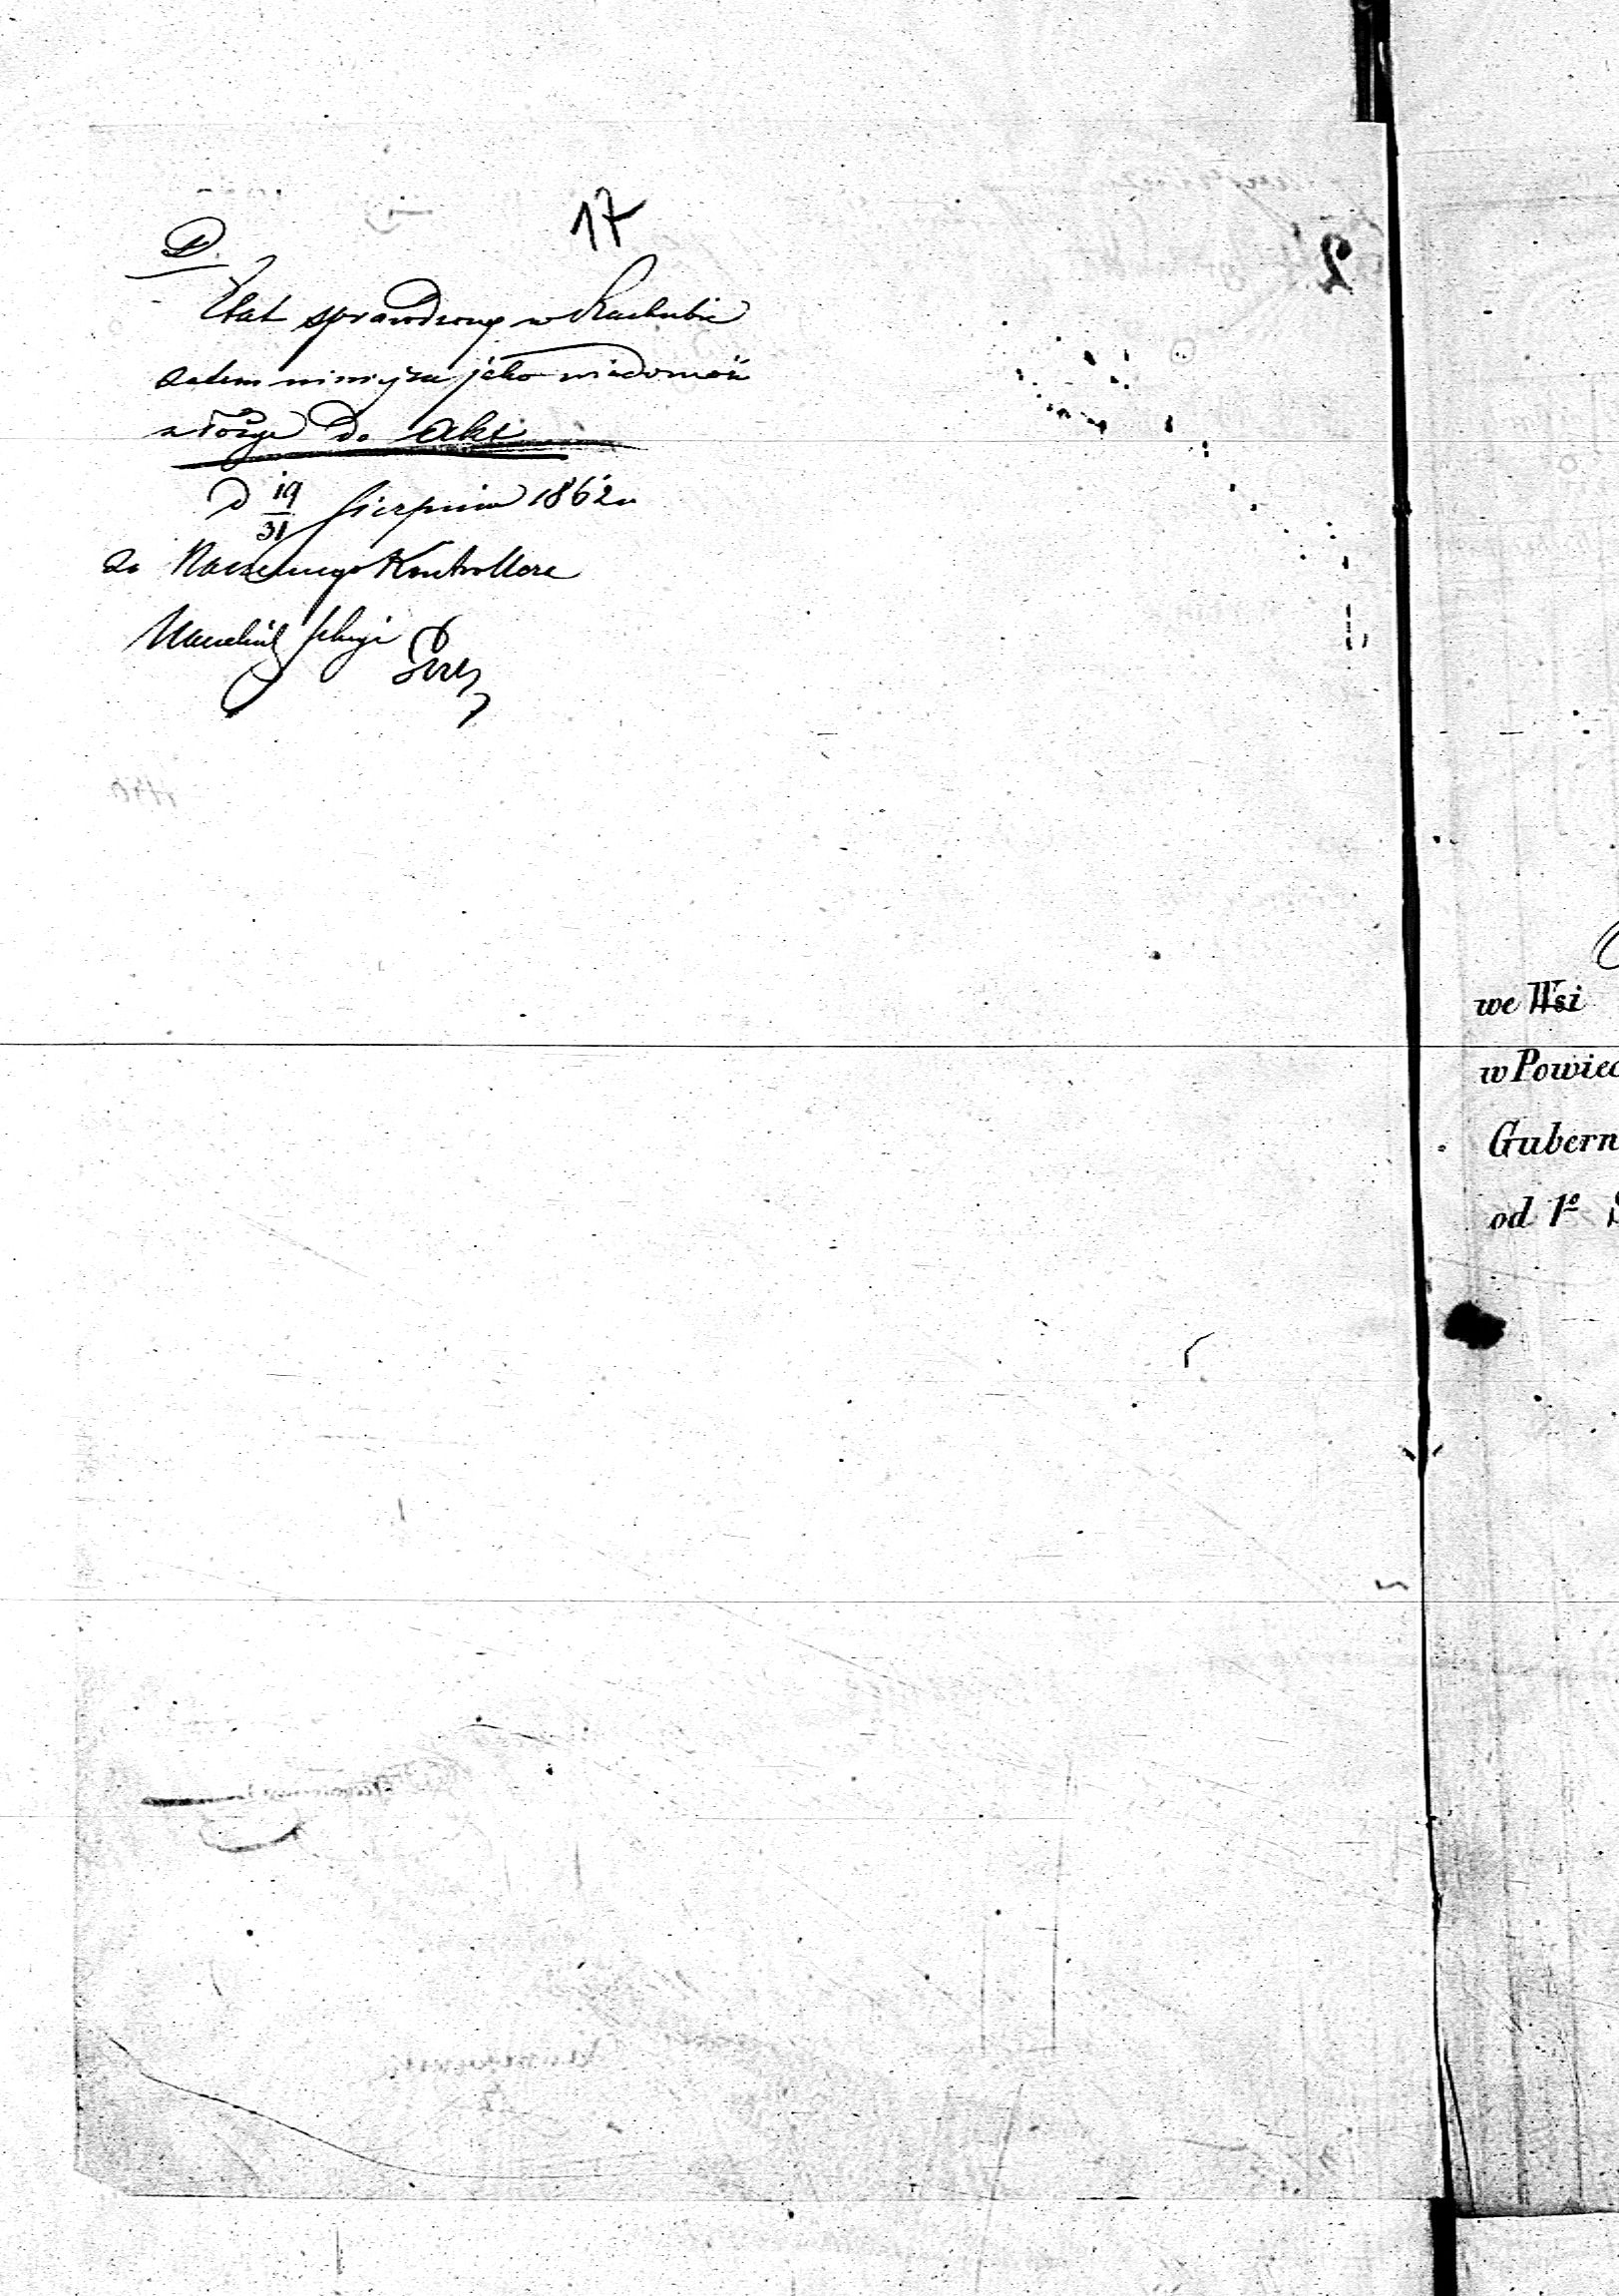 17
D.
Etat sprawdzony w Rachubie
zatem niniejsze jako wiadomość
złożyć do Akt
d 19/31 Sierpnia 1862 r
za Naczelnego Kontrollera
Naczelnik Sekcji
2
we Wsi
w Powiec
Gubern
od 1º S